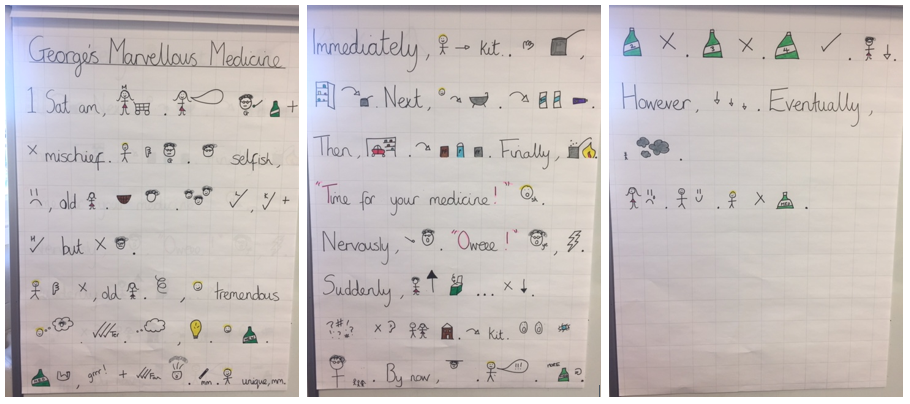 George's Marvellous Medicine
1 Sat am, . . +
× mischief. . selfish,
, old . . +
but × .
×, old . , tremendous
. . .
, grrr! + . mm. unique, mm.
Immediately, → kit.. ,
. Next, . .
Then, . . Finally,
"Time for your medicine!" .
Nervously, . "Oweee!" , .
Suddenly, ... × .
× kit.
. By now, . !!! .
2 × . 3 × . 4 . .
However, . Eventually,
.
. . × .